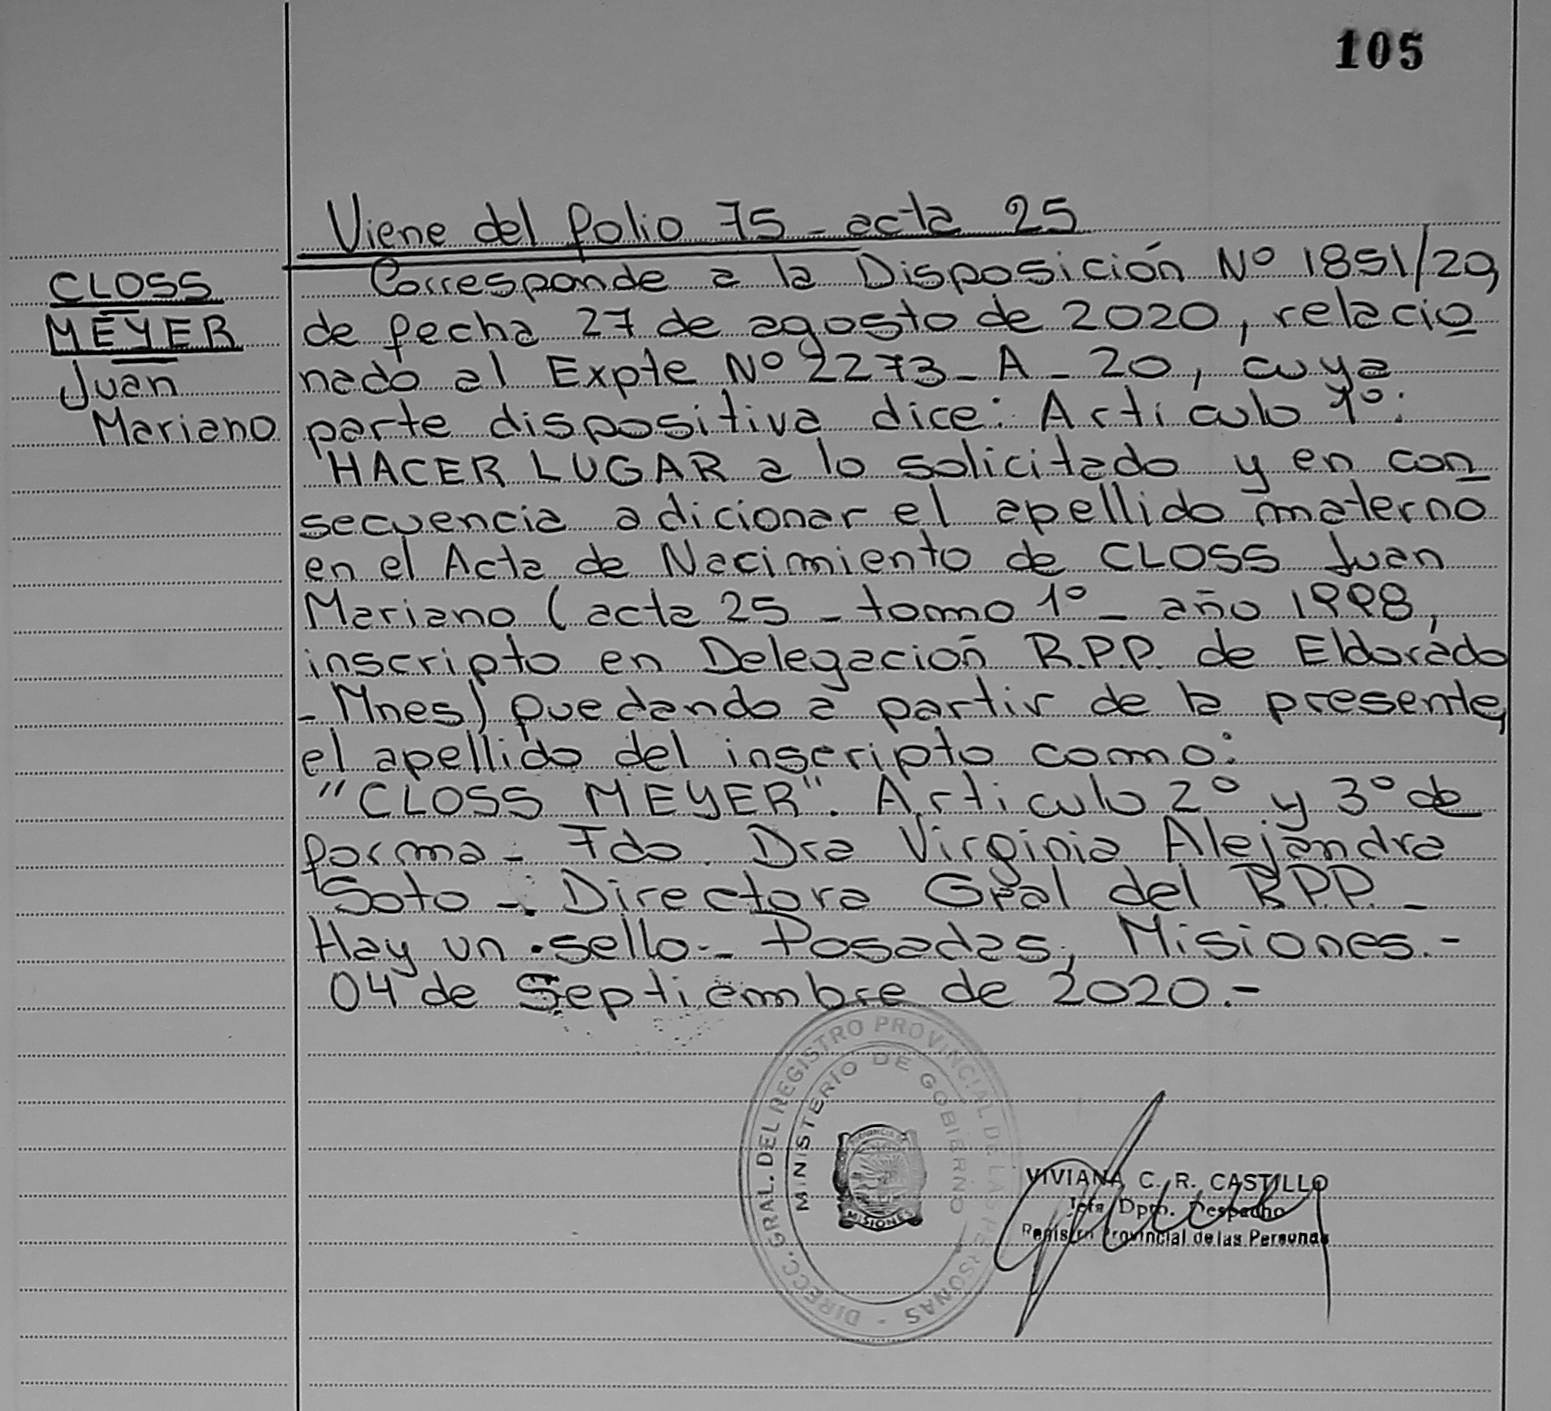 105
Viene del folio 75 - acta 25
CLOSS
MEYER
Juan
Mariano
Corresponde a la Disposición Nº 1851/20,
de fecha 27 de agosto de 2020, relacio
nado al Expte Nº 2273 - A - 20, cuya
parte dispositiva dice: Articulo 1º:
HACER LUGAR a lo solicitado y en con
secuencia adicionar el apellido materno
en el Acta de Nacimiento de CLOSS Juan
Mariano (acta 25 - tomo 1º - año 1998,
inscripto en Delegación R.P.P. de Eldorado
- Mnes) quedando a partir de la presente,
el apellido del inscripto como:
"CLOSS MEYER". Articulo 2º y 3º de
forma - Fdo. Dra Virginia Alejandra
Soto -. Directora Gral del R.P.P. -
Hay un sello:- Posadas, Misiones.-
04 de Septiembre de 2020.-
DIRECC. GRAL. DEL REGISTRO PROVINCIAL DE LAS PERSONAS -
MINISTERIO DE GOBIERNO
PROVINCIA DE
MISIONES
VIVIANA C. R. CASTILLO
Jefa Dpto. Despacho
Registro Provincial de las Personas